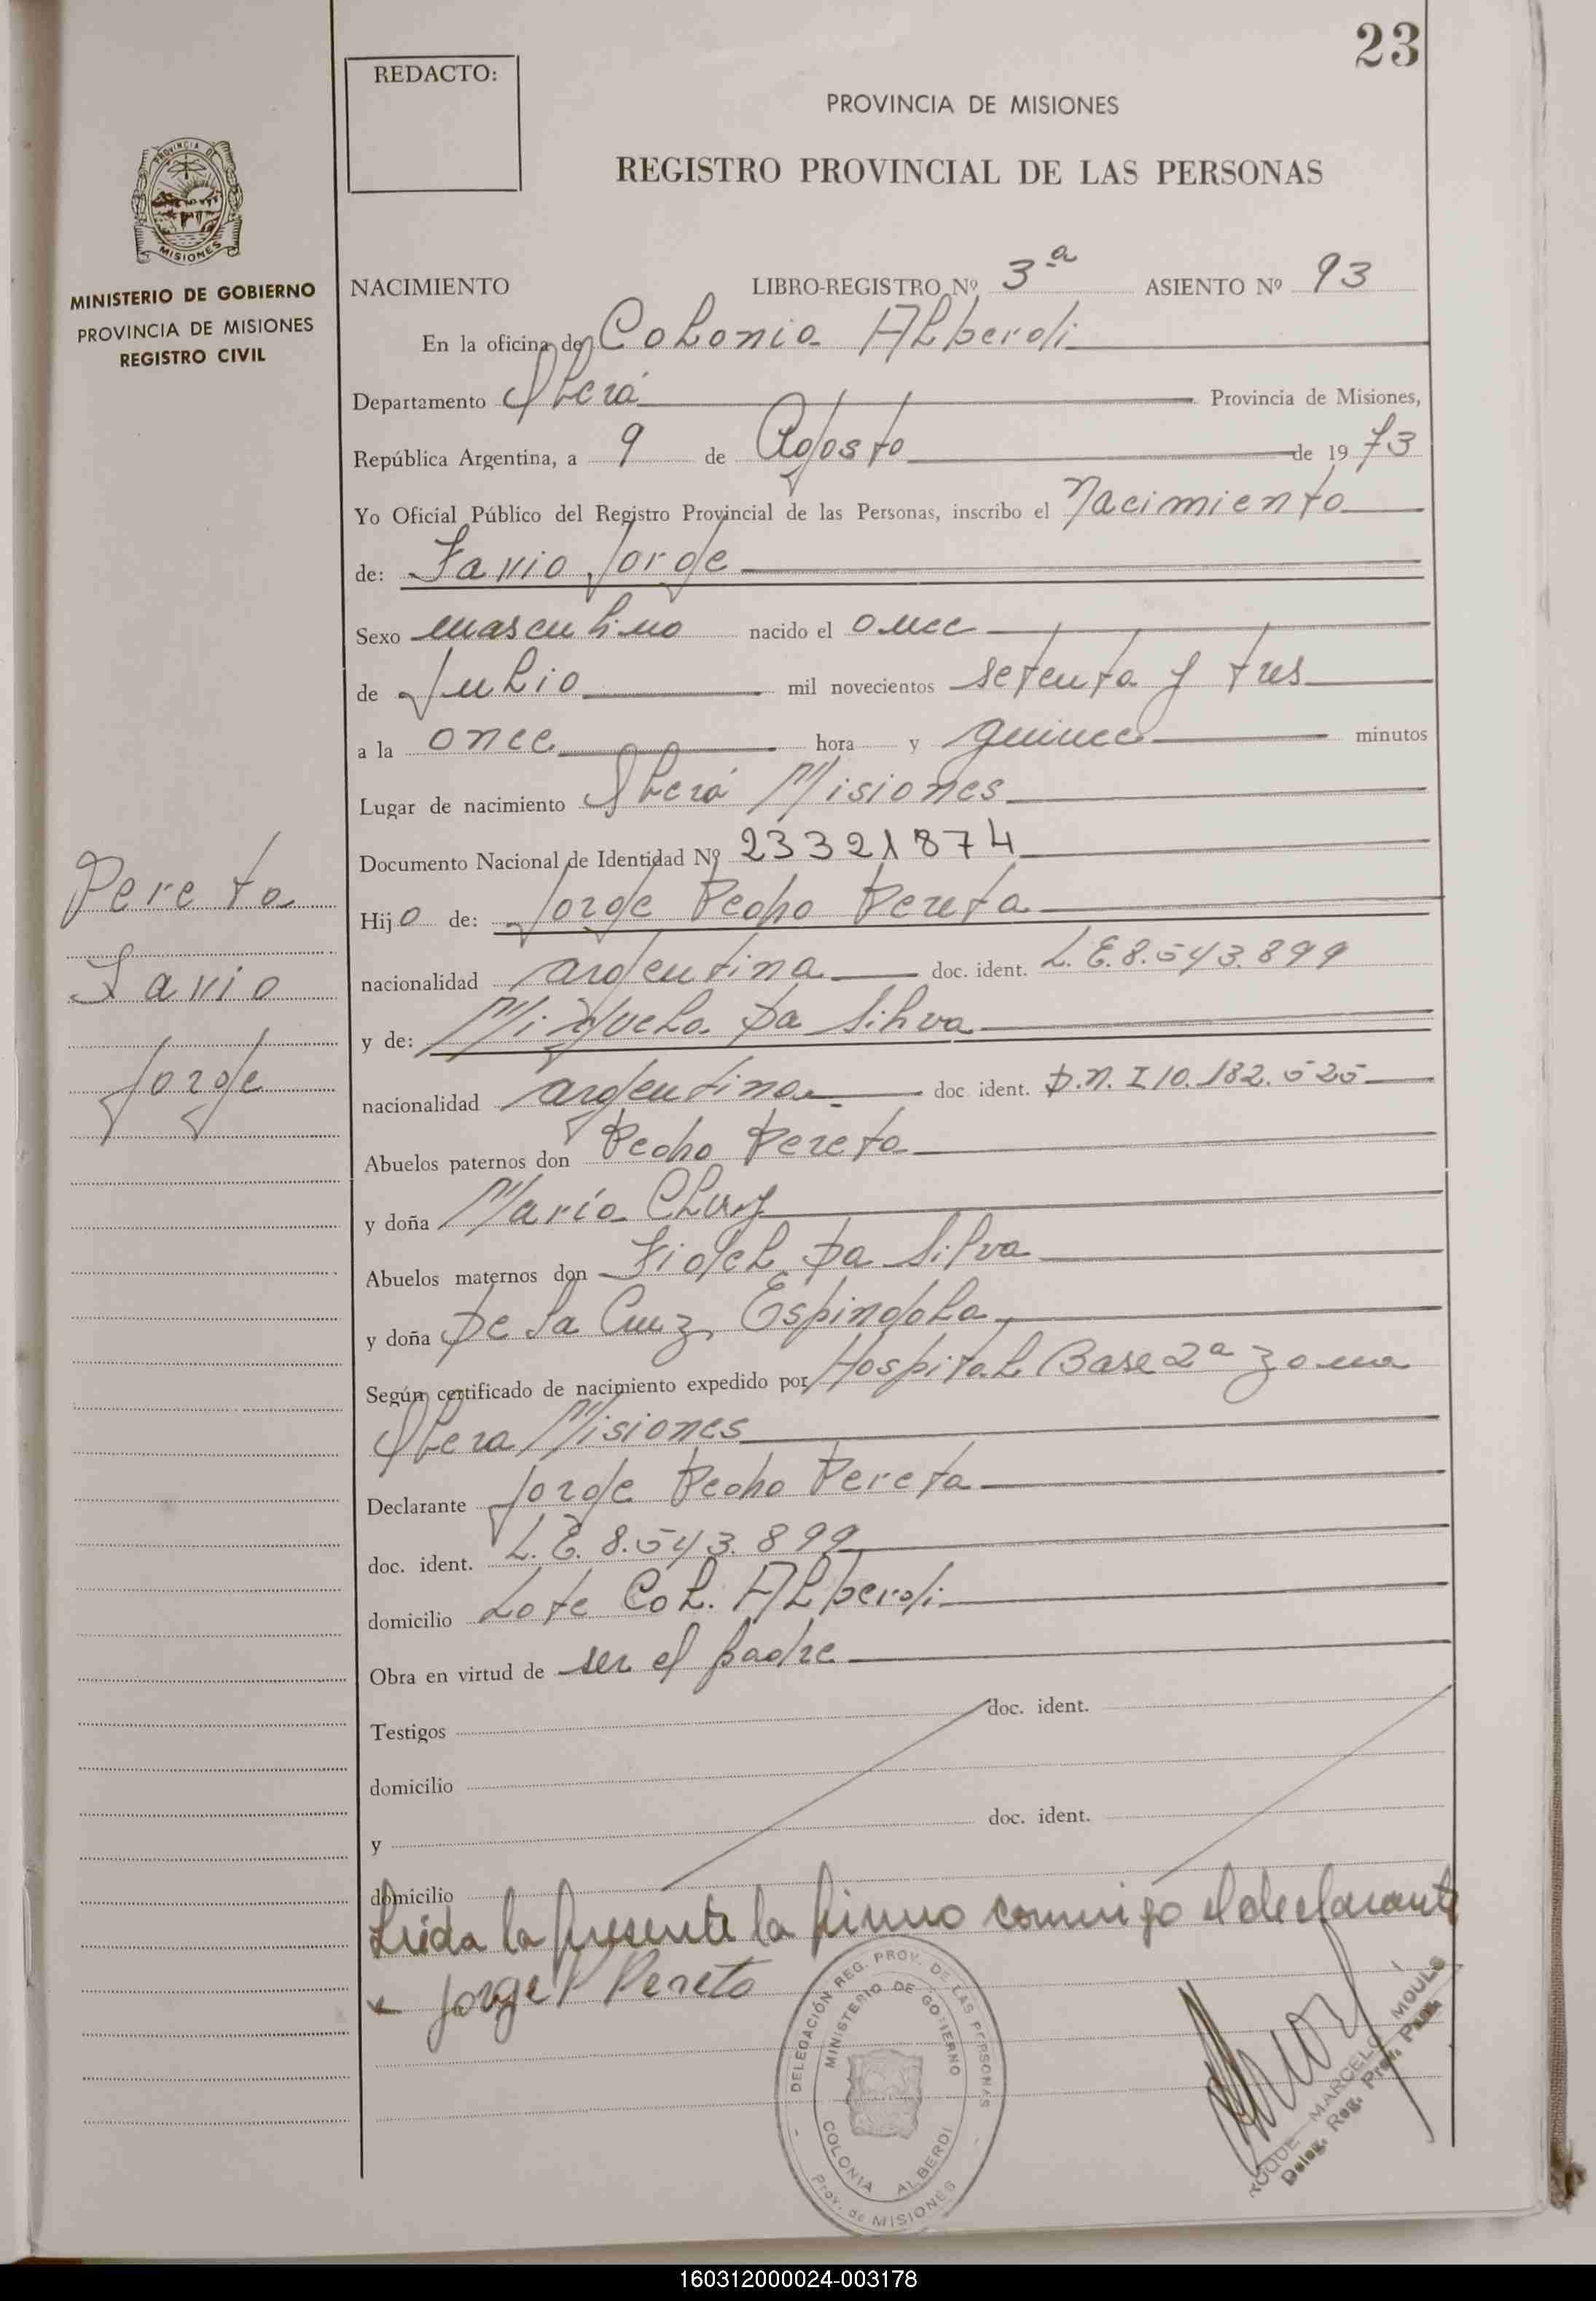 23
REDACTO:
PROVINCIA DE MISIONES
REGISTRO PROVINCIAL DE LAS PERSONAS
PROVINCIA DE
MISIONES
MINISTERIO DE GOBIERNO
PROVINCIA DE MISIONES
REGISTRO CIVIL
NACIMIENTO LIBRO-REGISTRO Nº 3ª ASIENTO Nº 93
En la oficina de Colonia Alberdi
Departamento Oberá Provincia de Misiones,
República Argentina, a 9 de Agosto de 1973
Yo Oficial Público del Registro Provincial de las Personas, inscribo el Nacimiento
de: Favio Jorge
Sexo masculino nacido el once
de Julio mil novecientos setenta y tres
a la once hora y quince minutos
Lugar de nacimiento Oberá Misiones
Documento Nacional de Identidad Nº 23321874
Hijo de: Jorge Pedro Pereta
nacionalidad argentina doc. ident. L.E.8.543.899
y de: Miguela Da Silva
nacionalidad argentina doc. ident. D.N.I 10.182.525
Abuelos paternos don Pedro Pereta
y doña María
Abuelos maternos don Fidel Da Silva
y doña De La Cruz, Espindola
Según certificado de nacimiento expedido por Hospital Base 2ª zona
Obera Misiones
Declarante Jorge Pedro Pereta
doc. ident. L.E. 8.543.899
domicilio Lote Col. Alberdi
Obra en virtud de ser el padre
Testigos doc. ident.
domicilio
y doc. ident.
domicilio
Leida la presente la firmo conmigo el declarante
Jorge P Pereta
Pereta
Favio
Jorge
DELEGACIÓN REG. PROV. DE LAS PERSONAS
MINISTERIO DE GOBIERNO
COLONIA ALBERDI
Prov. de MISIONES
ROQUE MARCELO MOULS
Deleg. Reg. Prov. Pers.
160312000024-003178